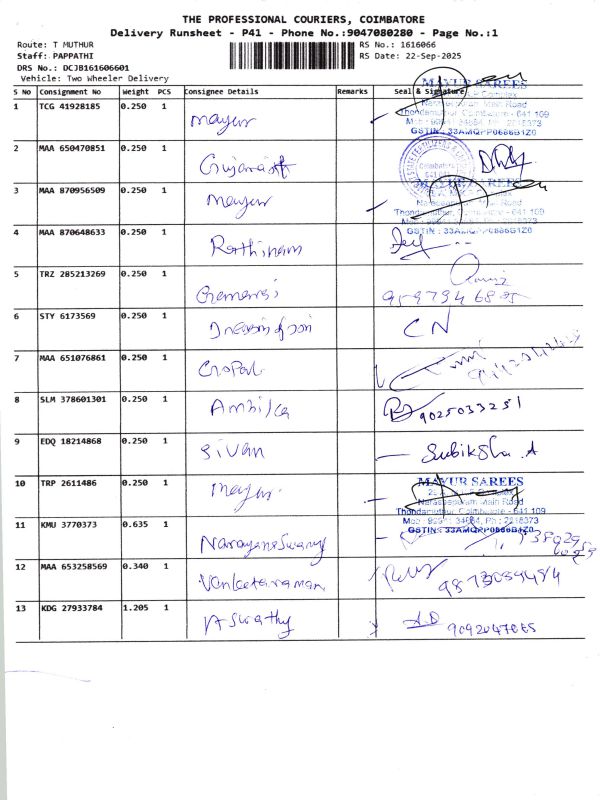 THE PROFESSIONAL COURIERS, COIMBATORE
Delivery Runsheet - P41 - Phone No.:9047080280 - Page No.:1
Route: T MUTHUR
RS No.: 1616066
Staff: PAPPATHI
RS Date: 22-Sep-2025
DRS No.: DCJB161606601
Vehicle: Two Wheeler Delivery
S No Consignment No Weight PCS Consignee Details Remarks Seal & Signature
MAYUR SAREES
Main Road
Coimbatore - 641 109
GSTIN : 33AMQPP0686B1Z0
1 TCG 41928185 0.250 1 Mayur
2 MAA 650470851 0.250 1
Coimbatore
3 MAA 870956509 0.250 1 Mayur
MAYUR SAREES
Naraseepuram Main Road
Coimbatore - 641 109
GSTIN : 33AMQPP0686B1Z0
4 MAA 870648633 0.250 1 Rathinam
5 TRZ 285213269 0.250 1
6 STY 6173569 0.250 1 CN
7 MAA 651076861 0.250 1 Gopal
8 SLM 378601301 0.250 1 Ambika 9025033251
9 EDQ 18214868 0.250 1 Sivan Subiksha.A
10 TRP 2611486 0.250 1 Mayur
MAYUR SAREES
Thondamuthur, Coimbatore - 641 109
GSTIN : 33AMQPP0686B1Z0
11 KMU 3770373 0.635 1 Narayanaswamy
12 MAA 653258569 0.340 1 Venkataraman
13 KDG 27933784 1.205 1 Aswathy